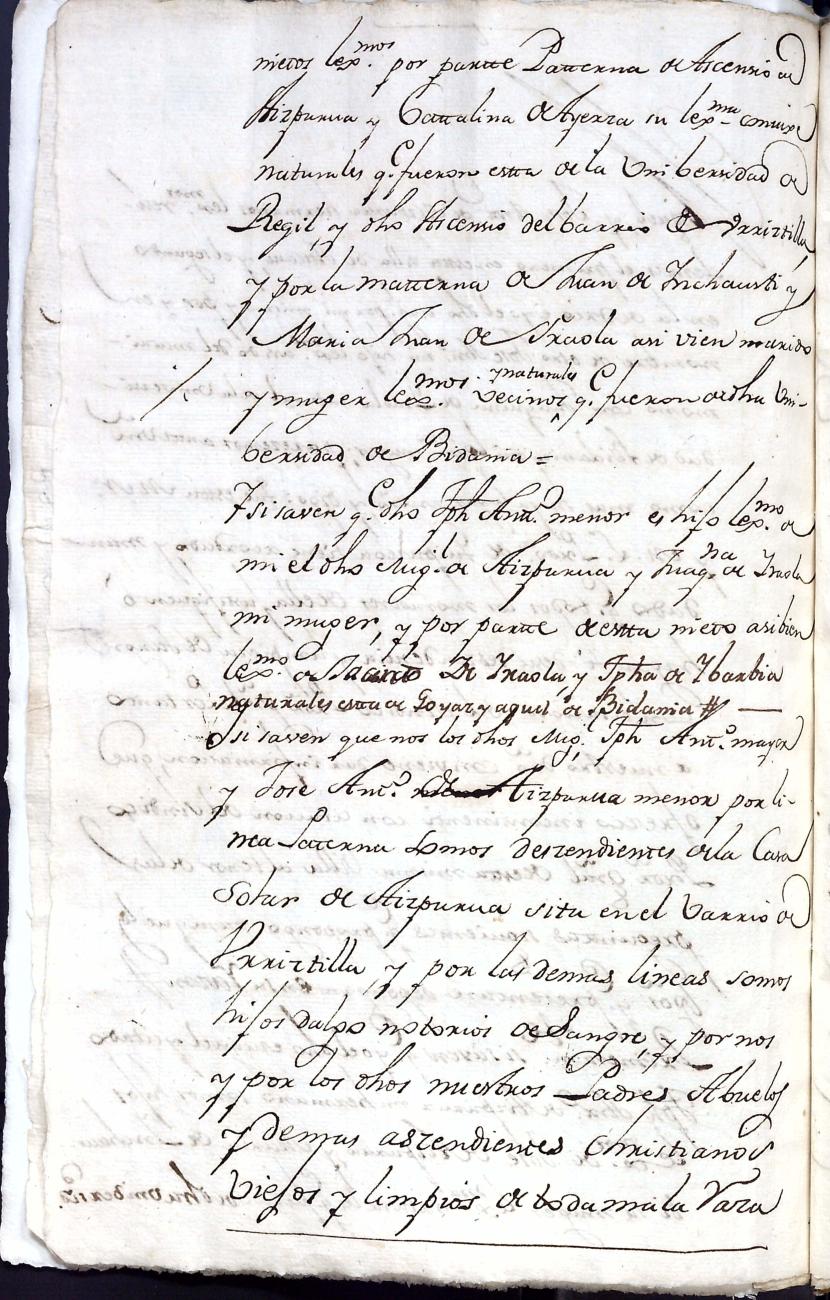 nietos lex.mos por partte Patterna de Ascensio de
Aizpurua y Cattalina de Ayerza su lex.ma conuixe
naturales q.e fueron estta de la Vnibersidad de
Regil, y dho Ascensio del barrio de Vrriztilla,
y por la matterna de Juan de Inchausti y
Maria Juan de Yraola asi vien marido
y muger lex.mos vecinos y naturales q.e fueron de dha Vni-
bersidad de Bidania =
Y si saven q.e dho Jph Antt.o menor es hijo lex.mo de
mi el dho Mig.l de Aizpurua y Juaq.na de Yraola
mi muger, y por partte de estta nieto asi bien
lex.mo de Jacinto De Yraola, y Jpha de Ybarbia
naturales estta de Goyaz y aquel de Bidania #
Si saven que nos los dhos Mig.l Jph Ant.o mayor
y Jose Ant.o Aizpurua menor por li-
nea Paterna somos deszendientes de la Casa
Solar de Aizpurua sita en el Varrio de
Vrriztilla, y por las demas lineas somos
hijos dalgo notorios de Sangre, y por nos
y por los dhos nuestros Padres Abuelos
y Demas aszendientes Christianos
Viejos y limpios de toda mala Raza